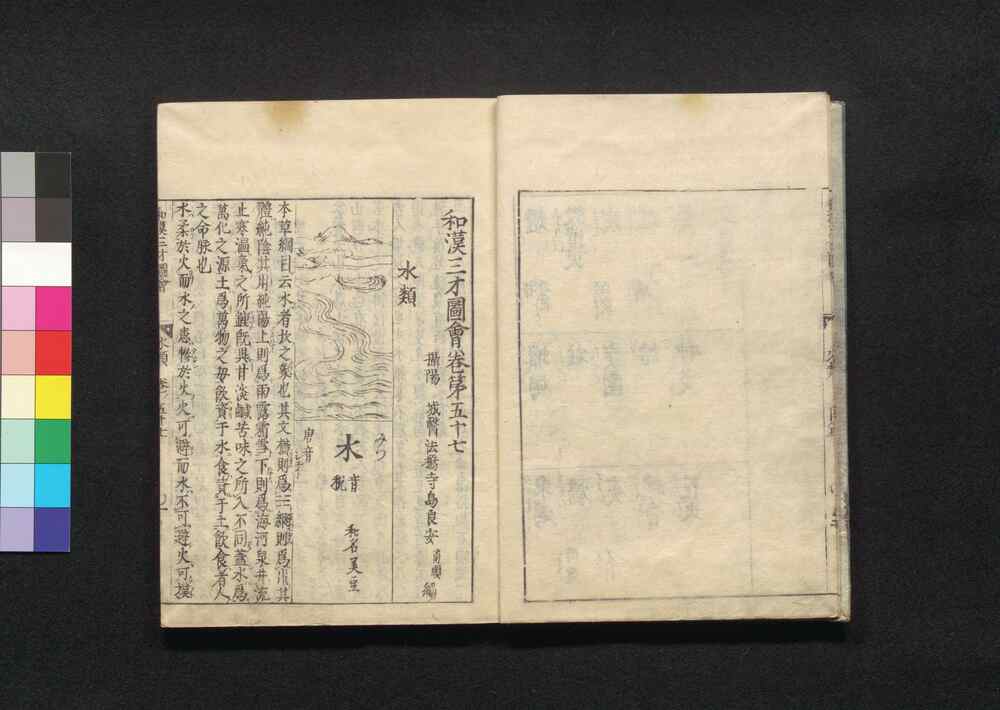 和漢三才圖會卷第五十七
攝陽 城醫法橋寺島良安 尚順 編
水類
みづ
水
音
唐音
和名美豆
本草綱目云水者坎之象也其文橫則爲三縱則爲川其
體純陰其用純陽上則爲雨露霜雪下則爲海河泉井流
止寒溫氣之所鍾旣異甘淡鹹苦味之所入不同蓋水爲
萬化之源土爲萬物之母飮資于水食資于土飮食者人
之命脉也
水柔於火而水之患慘於火火可避而水不可避火可撲
和漢三才圖會 水類 卷ノ五十七